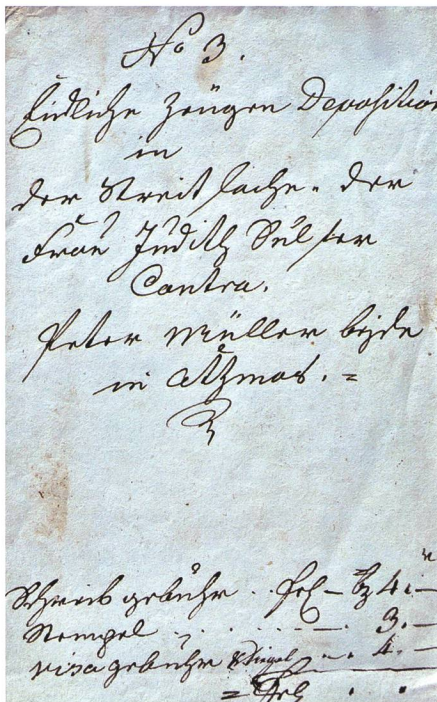 No 3.
Eidliche Zeügen Deposition
in
der Streitsache. der
Frau Judith Sulser
Contra.
Peter Müller beide
in Atzmos. =
Schreibgebühr . . 4. –
Stempel . . . . 3. –
Visagebühr & Siegel . . 4. –